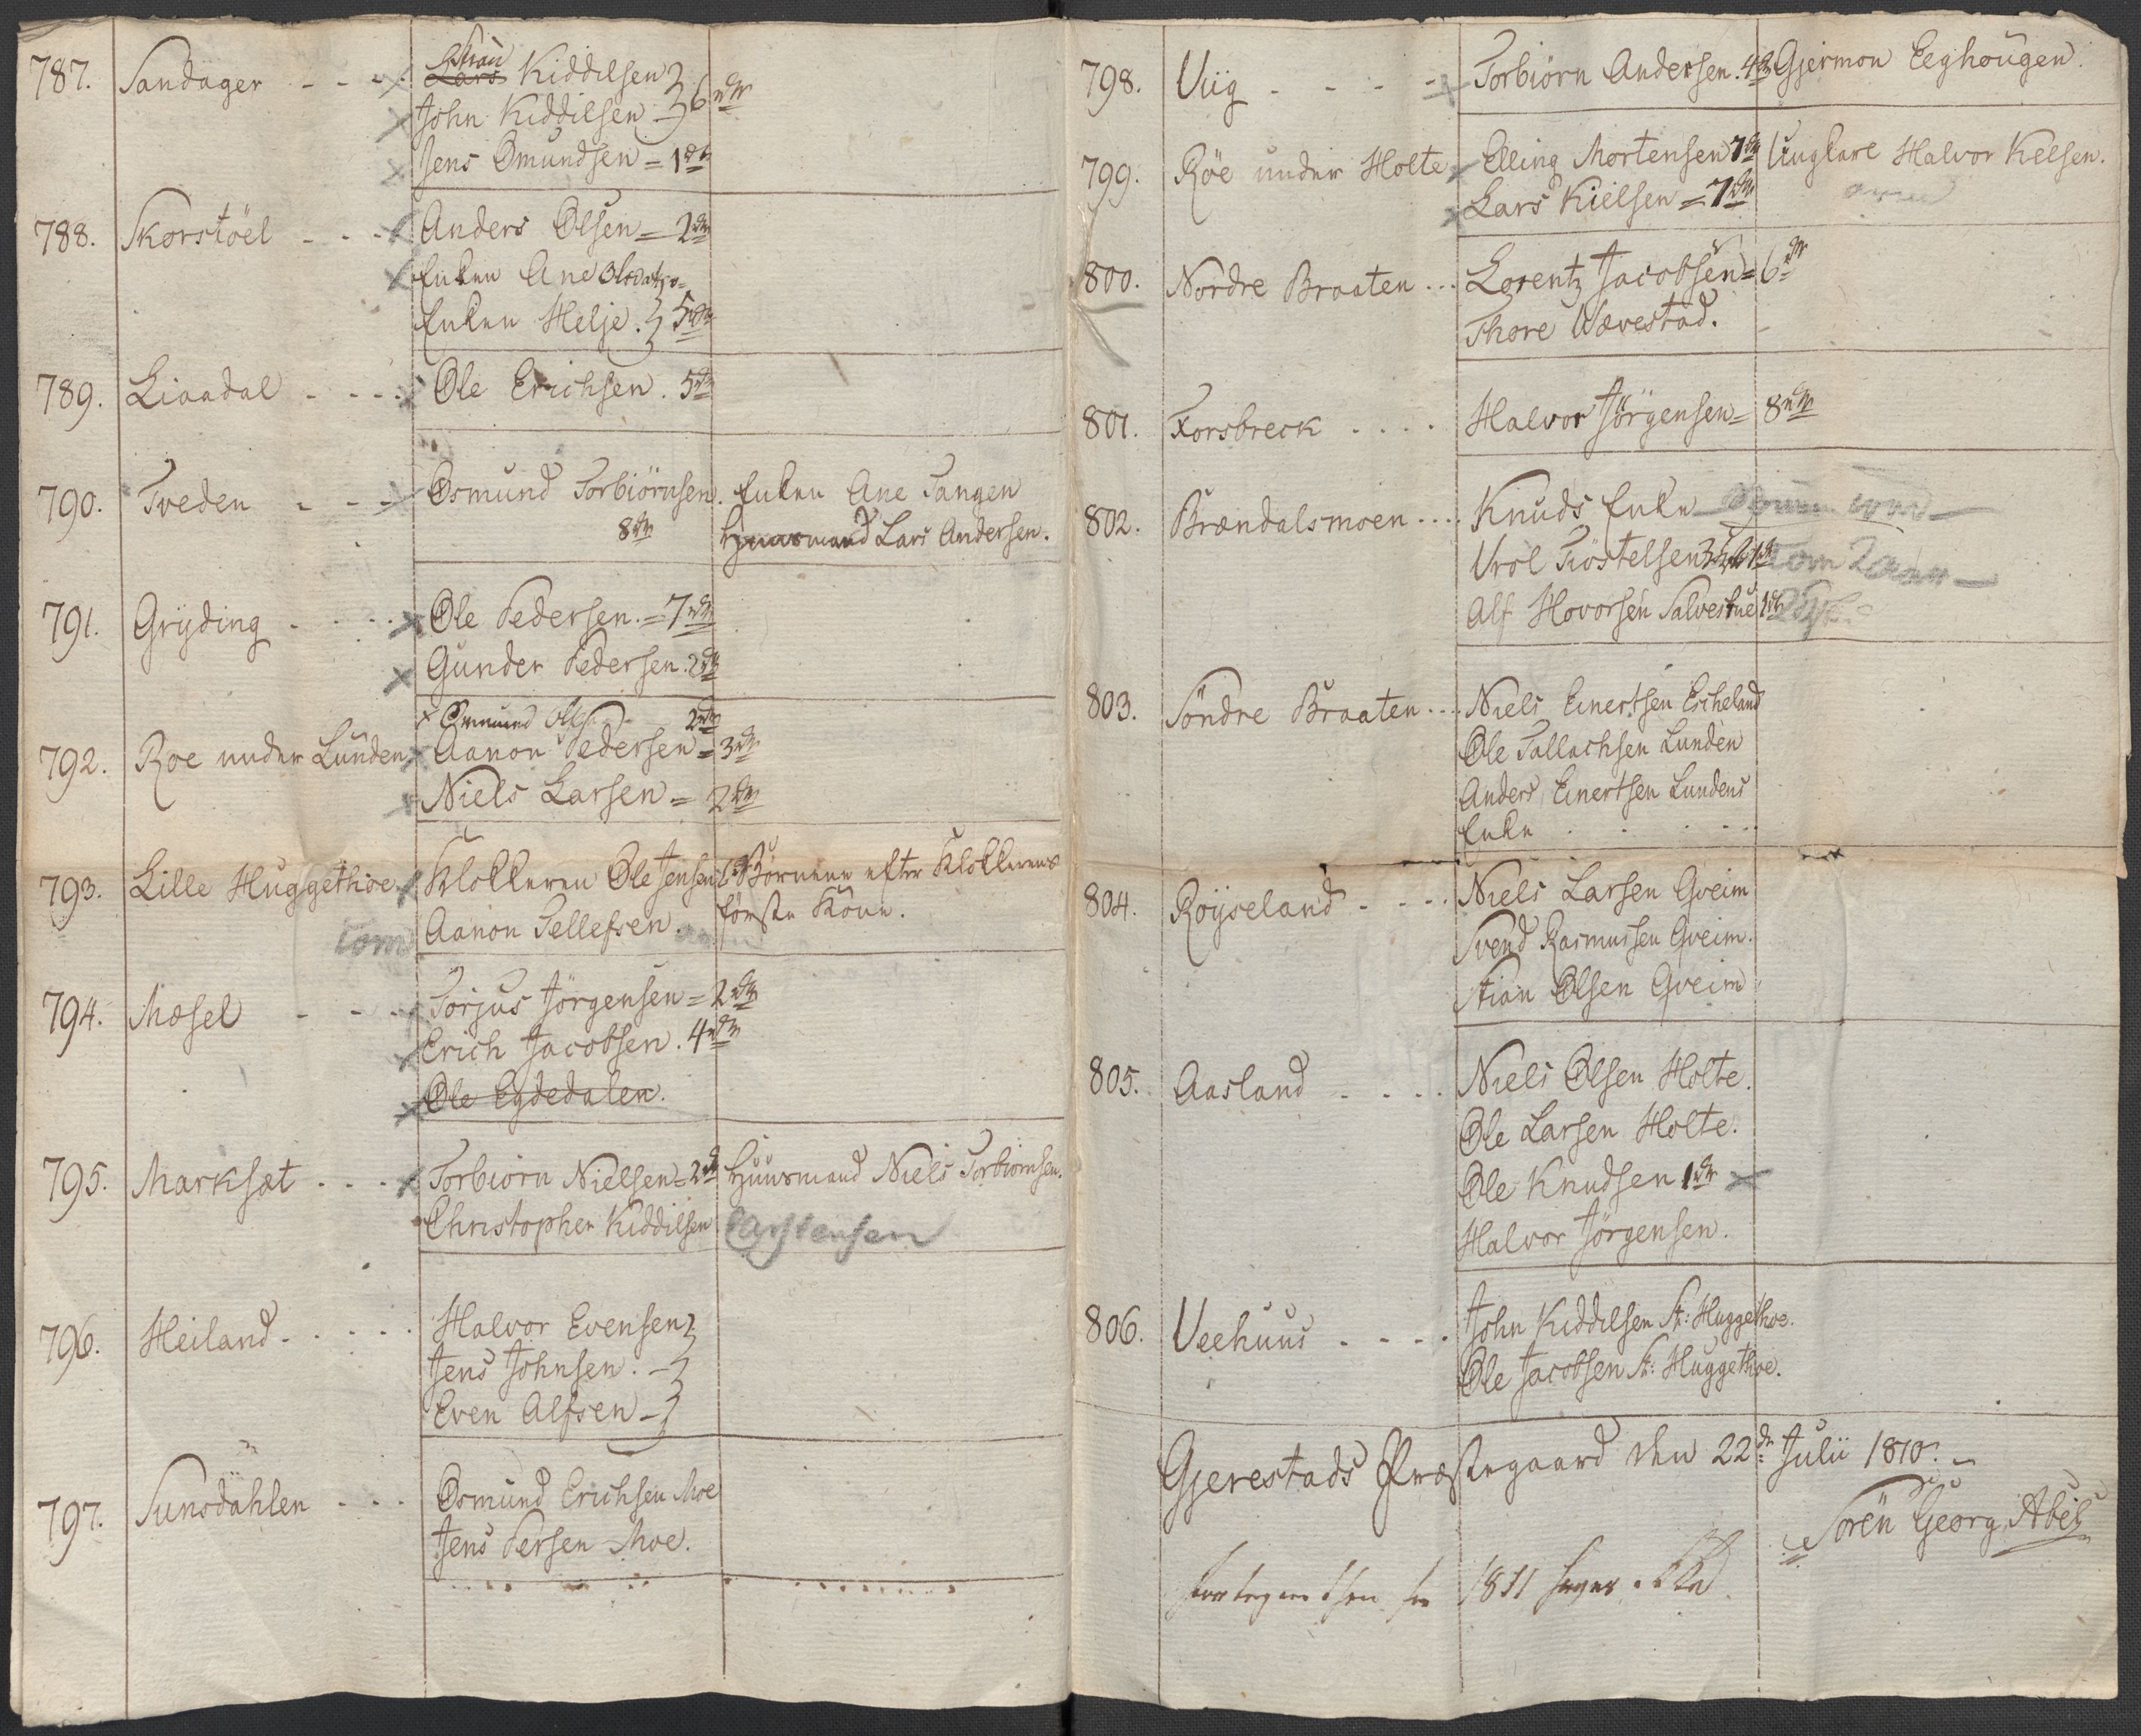 787. Sandager - - - Stian Kiddilsen
John Kiddilsen - 6 rdr
Jens Omundsen = 1 rdr
788. Skorstöel - - - Anders Olsen = 2 rdr
Enken Ane
Enken Helje. 5 rdr
789. Liaadal - - - Ole Erichsen. 5 rdr
790. Tveden - - - Osmund Torbiörnsen. Enken Ane Tangen
8 rdr Huusmand Lars Andersen.
791. Gryding - - - Ole Pedersen. = 7 rdr
Gunder Pedersen. 2 rdr
Osmund Ols. 2 rdr
792. Roe under Lunden Aanon Pedersen = 3 rdr
Niels Larsen = 2 rdr
793. Lille Huggethoe Klokkeren Ole Jensen Börnene efter Klokkerens
tom Aanon Tellefsen. förste Kone.
794. Mosel - - - Torjus Jörgensen = 2 rdr
Erich Jacobsen. 4 rdr
Ole Egdedalen.
795. Marksæt . . . Torbiörn Nielsen = 2 rdr Huusmand Niels Torbiörnsen.
Christopher Kiddilsen Carstensen
796. Heiland - . . . Halvor Evensen
Jens Johnsen. -
Even Alfsen -
797. Sunsdahlen . . . Osmund Erichsen Moe
Jens Persen Moe.
798. Viig - - - - Torbiörn Andersen. 4 rdr Gjermon Eeghougen.
799. Röe under Holte Elling Mortensen 7 rdr Ungkarl Halvor Kelsen.
Lars Kielsen = 7 rdr
800. Nordre Braaten . . . Lorentz Jacobsen = 6 rdr
Thore Wævestad.
801. Forsbreck . . . . Halvor Jörgensen = 8 rdr
802. Brændalsmoen . . . . Knuds Enke
Vrol Tiostelsen
Alf Hovorsen Salvestue 1 rdr
803. Söndre Braaten . . . Niels Einertsen Escheland
Ole Tallachsen Lunden
Anders Einertsen Lundens
Enke . . . . .
804. Röyseland - . . . Niels Larsen Gveim
Svend Rasmussen Gveim.
Stian Olsen Gveim
805. Aasland - . . . Niels Olsen Holte.
Ole Larsen Holte.
Ole Knudsen 1 rdr
Halvor Jörgensen.
806. Veehuus - . . . John Kiddilsen St: Huggethoe.
Ole Jacobsen St: Huggethoe.
Gjerestads Præstegaard den 22de Julii 1810.
Sören Georg Abel
1811